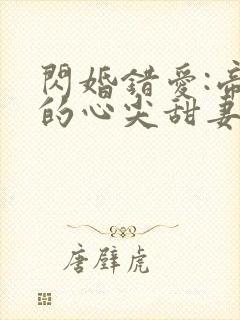 閃婚錯愛:帝
的心尖甜妻
唐壁虎